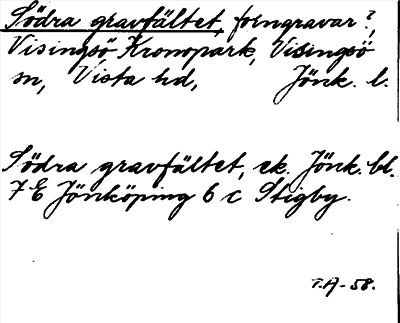 Södra gravfältet, forngravar?,
Visingsö Kronopark, Visingsö
sn, Vista hd, Jönk. l.
Södra gravfältet, ek. Jönk. bl.
7 E Jönköping 6 c Stigby.
T.A-58.